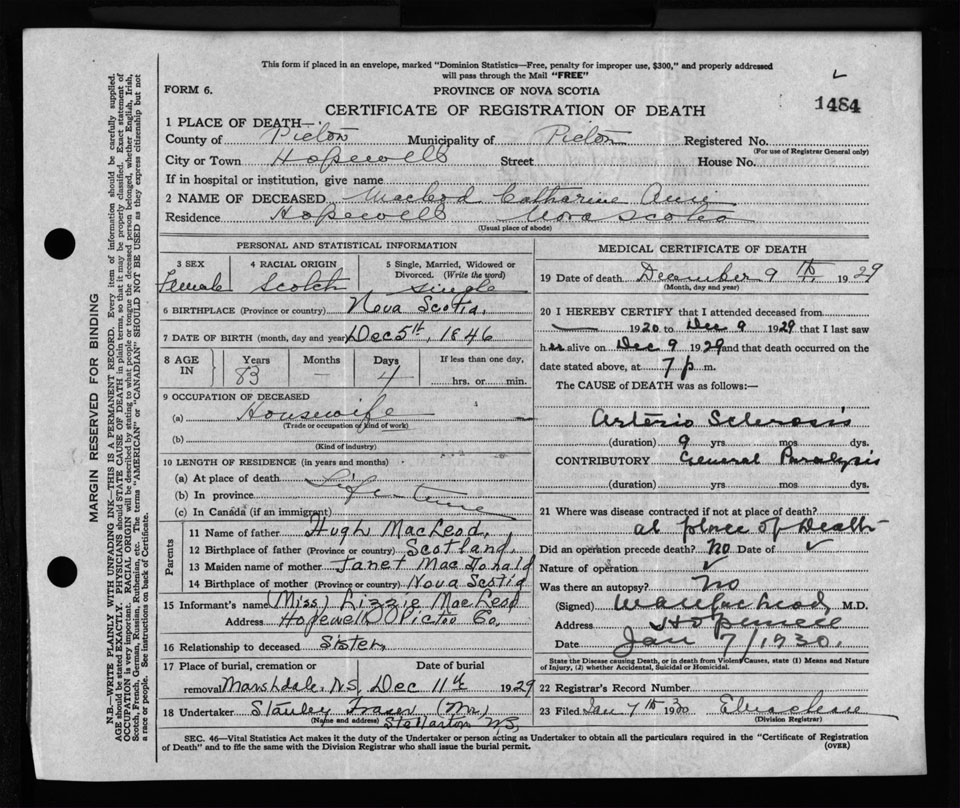 This form if placed in an envelope, marked "Dominion Statistics—Free, penalty for improper use, $300," and properly addressed
will pass through the Mail "FREE"
FORM 6.
PROVINCE OF NOVA SCOTIA
CERTIFICATE OF REGISTRATION OF DEATH
1484
1 PLACE OF DEATH—
County of Pictou Municipality of Pictou Registered No.
(For use of Registrar General only)
City or Town Hopewell Street House No.
If in hospital or institution, give name
2 NAME OF DECEASED MacLeod Catharine Ann
Residence Hopewell Nova Scotia
(Usual place of abode)
PERSONAL AND STATISTICAL INFORMATION
3 SEX 4 RACIAL ORIGIN 5 Single, Married, Widowed or
Divorced. (Write the word)
Female Scotch Single
6 BIRTHPLACE (Province or country) Nova Scotia.
7 DATE OF BIRTH (month, day and year) Dec 5th, 1846
8 AGE IN Years Months Days If less than one day,
83 — 4 hrs. or min.
9 OCCUPATION OF DECEASED
(a) Housewife
(Trade or occupation or kind of work)
(b)
(Kind of industry)
10 LENGTH OF RESIDENCE (in years and months)
(a) At place of death
(b) In province Life time
(c) In Canada (if an immigrant)
Parents
11 Name of father Hugh MacLeod.
12 Birthplace of father (Province or country) Scotland.
13 Maiden name of mother Janet MacDonald
14 Birthplace of mother (Province or country) Nova Scotia
15 Informant's name (Miss) Lizzie MacLeod
Address Hopewell Pictou Co.
16 Relationship to deceased Sister,
17 Place of burial, cremation or Date of burial
removal Marshdale, N.S, Dec 11th 1929
18 Undertaker Stanley Fraser (Mr.)
(Name and address) Stellarton NS,
MEDICAL CERTIFICATE OF DEATH
19 Date of death December 9th 1929
(Month, day and year)
20 I HEREBY CERTIFY that I attended deceased from
1920 to Dec 9 1929 that I last saw
her alive on Dec 9 1929 and that death occurred on the
date stated above, at 7 p m.
The CAUSE of DEATH was as follows:
Arterio Sclerosis
(duration) 9 yrs. mos dys.
CONTRIBUTORY General Paralysis
(duration) yrs. mos. dys.
21 Where was disease contracted if not at place of death?
at place of Death
Did an operation precede death? No Date of ✓
Nature of operation ✓
Was there an autopsy? No
(Signed) M.D.
Address Hopewell
Date Jan 7/1930.
State the Disease causing Death, or in death from Violent Causes, state (1) Means and Nature
of Injury, (2) whether Accidental, Suicidal or Homicidal.
22 Registrar's Record Number
23 Filed Jan 7th 1930
(Division Registrar)
SEC. 46—Vital Statistics Act makes it the duty of the Undertaker or person acting as Undertaker to obtain all the particulars required in the "Certificate of Registration
of Death" and to file the same with the Division Registrar who shall issue the burial permit.
(OVER)
MARGIN RESERVED FOR BINDING
N.B.—WRITE PLAINLY WITH UNFADING INK—THIS IS A PERMANENT RECORD. Every item of information should be carefully supplied.
AGE should be stated EXACTLY. PHYSICIANS should STATE CAUSE OF DEATH in plain terms, so that it may be properly classified. Exact statement of
OCCUPATION is very important. RACIAL ORIGIN will be described by stating to what people or tongue the deceased person belonged, whether English, Irish,
Scotch, French, German, Russian, Ruthenian, etc. The terms "AMERICAN" or "CANADIAN" SHOULD NOT BE USED as they express citizenship but not
a race or people. See instructions on back of Certificate.